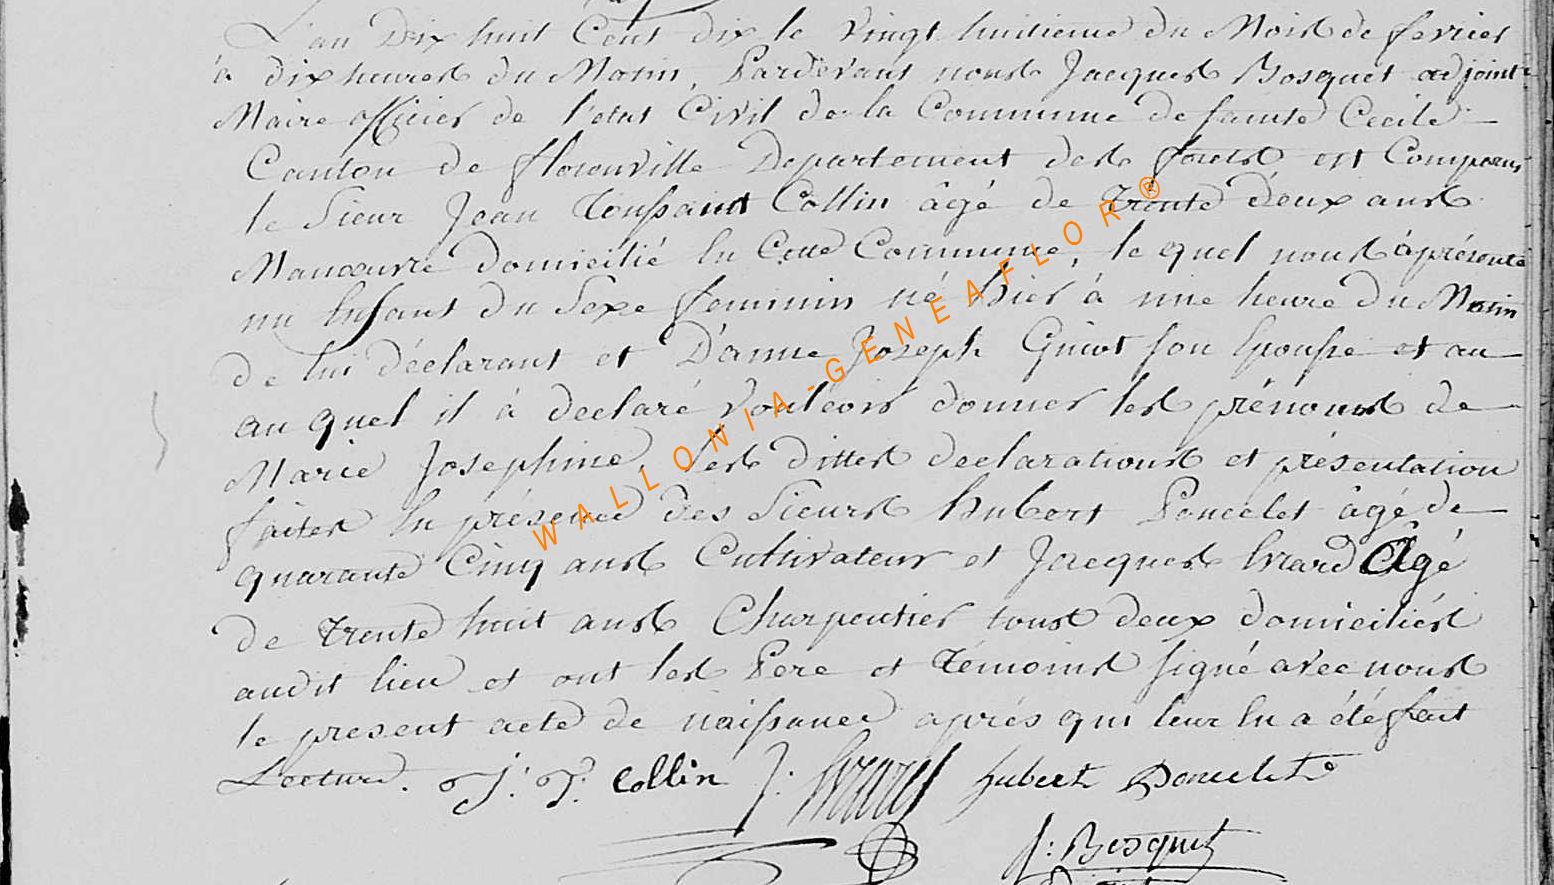 L'an Dix huit Cent dix le vingt huitieme du Mois de fevrier
à dix heures du Matin, Pardevant nous Jacques Bosquet adjoint
Maire officier de l'etat Civil de la Commune de sainte Cecile
Canton de florenville Departement des forets est Comparu
le Sieur Jean Toussaint Collin âgé de trente deux ans
Manoeuvre domicilié en Cette Commune, le quel nous à présenté
un Enfant du Sexe feminin né hier à une heure du Matin
de lui déclarant et D'anne Joseph Guiot son Epouse et au
au quel il à declaré vouleoir donner les prénoms de
Marie Josephine, les dittes declarations et présentation
faites En présence des Sieurs hubert Poncelet âgé de
quarante Cinq ans Cultivateur et Jacques Evard Agé
de trente huit ans Charpentier tous deux domiciliés
audit lieu et ont les Pere et témoins signé avec nous
le present acte de naissance aprés qui leur En a été fait
Lecture. J. T. Collin J: Evard hubert Poncelet
J: Bosquet
WALLONIA-GENEAFLOR®